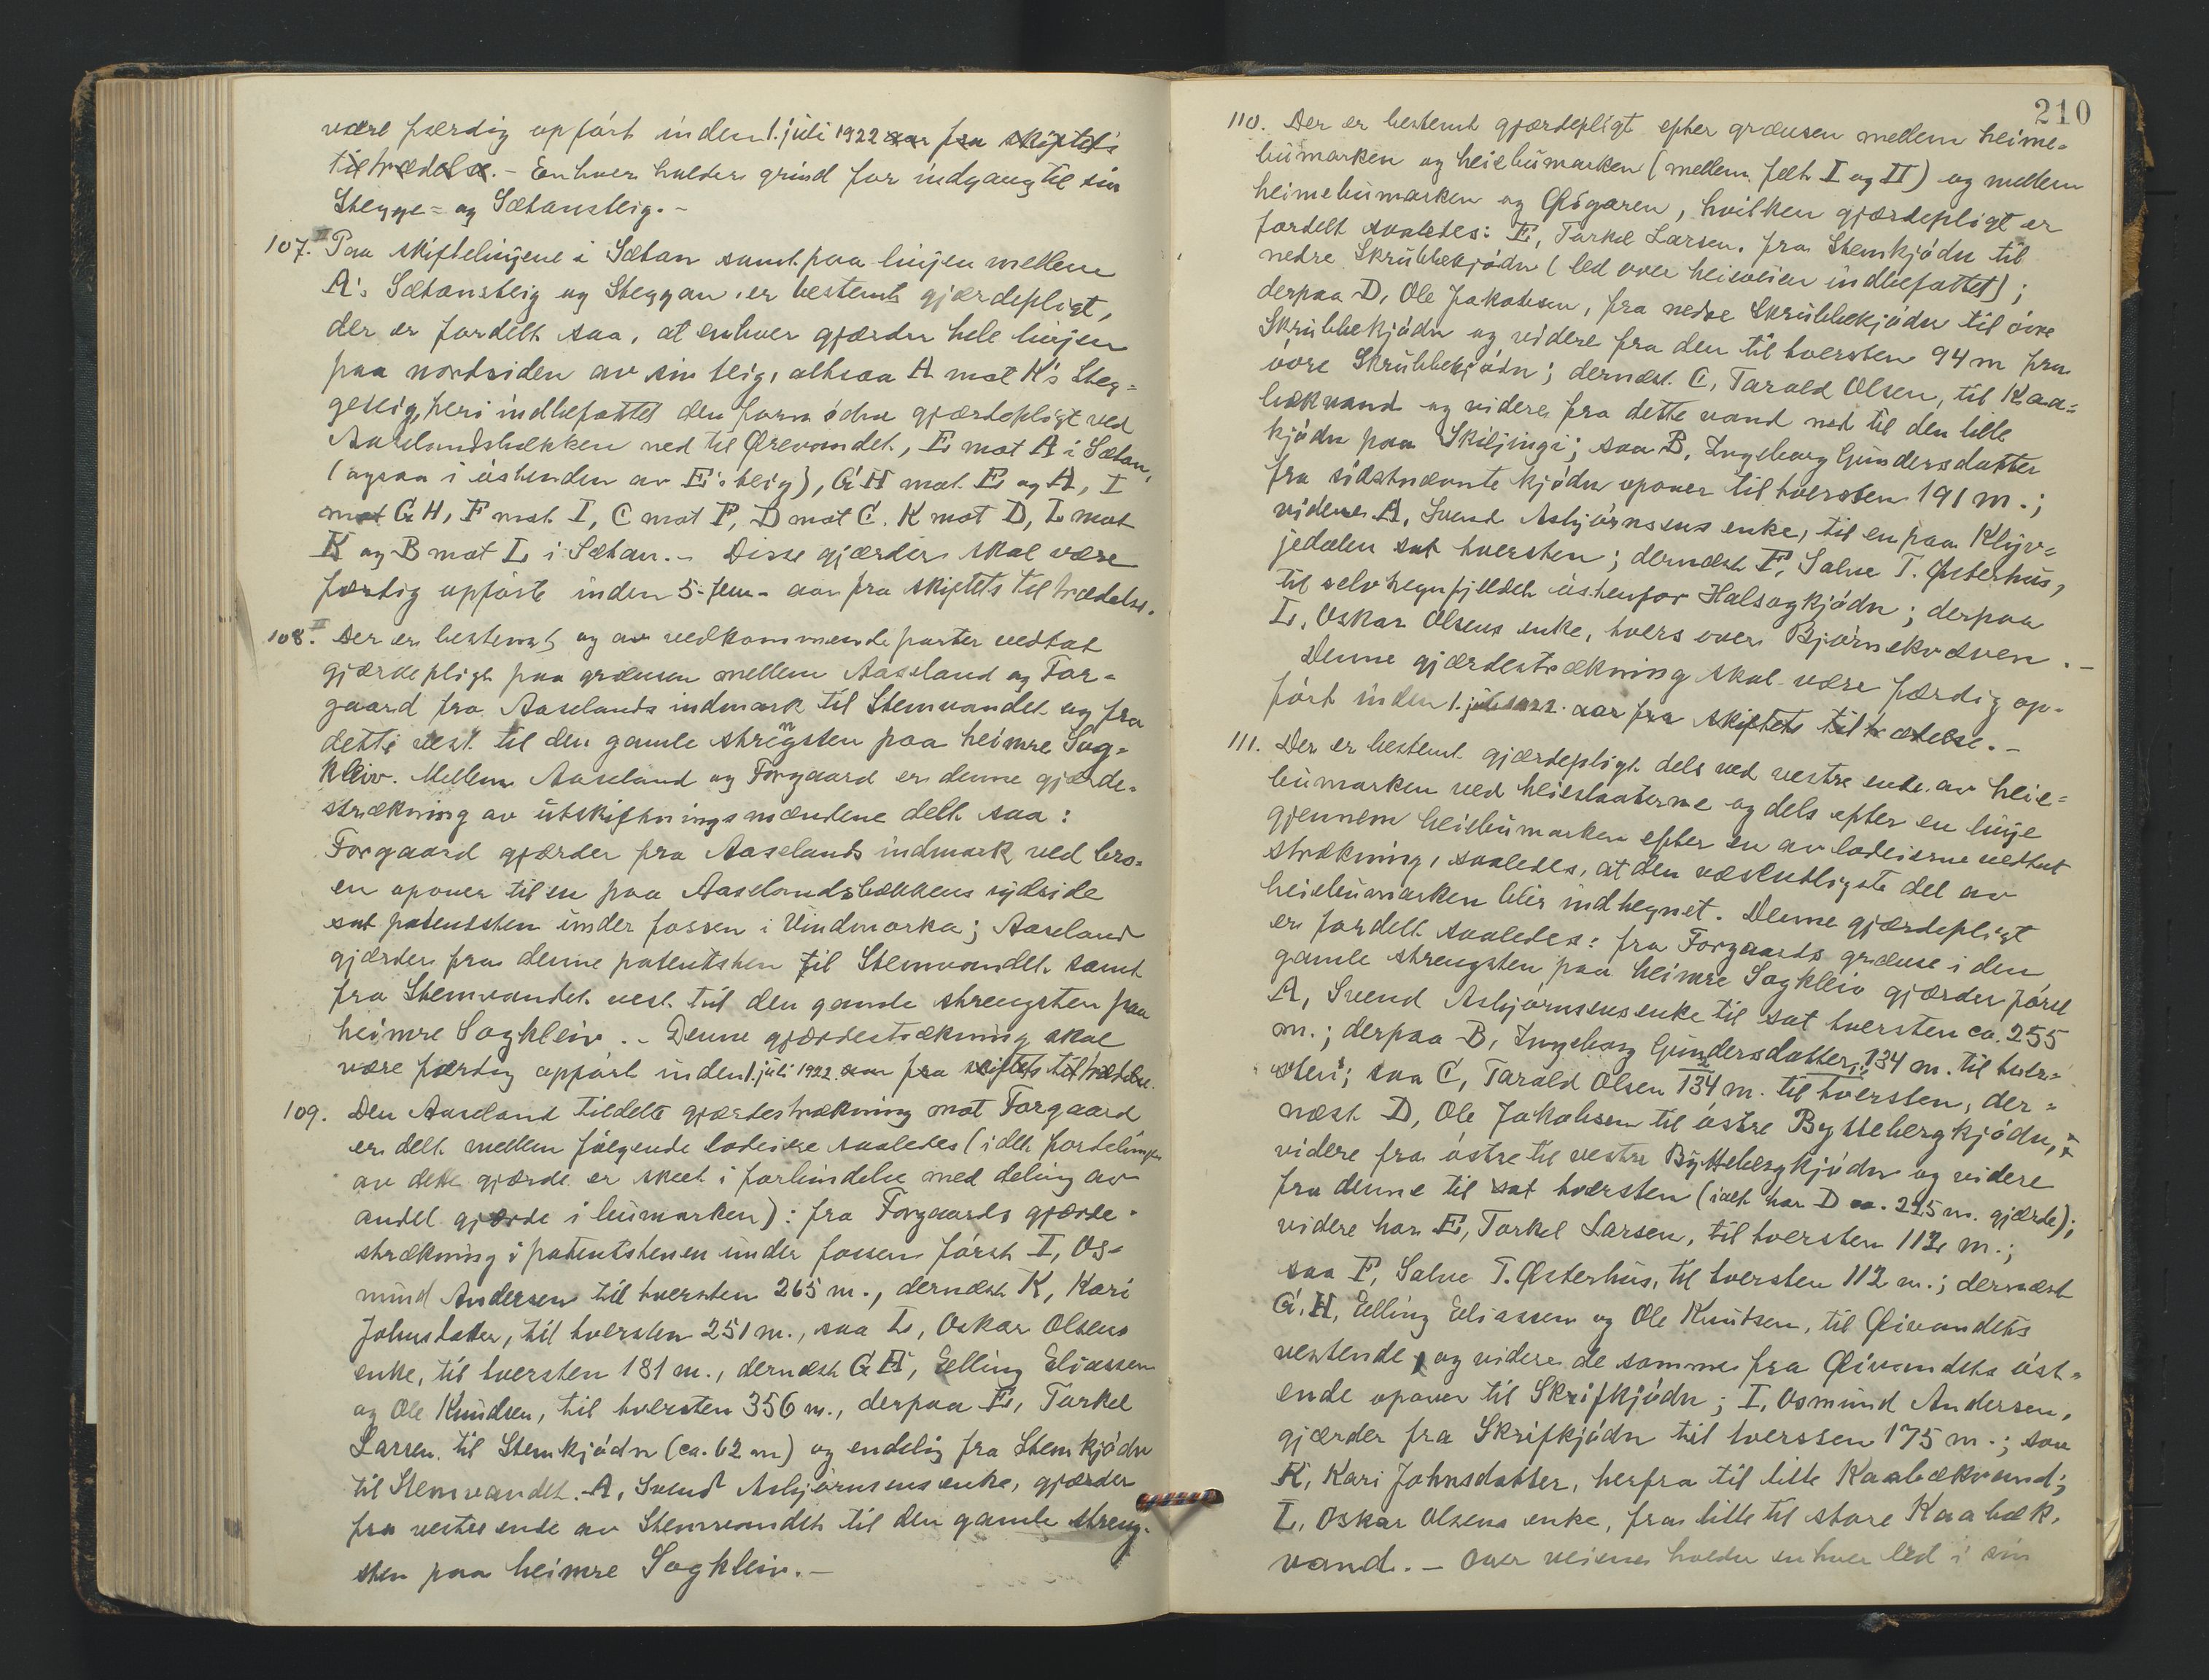 være færdig opført inden 1. juli 1922 aar fra skiftets
tiltrædelse. - Enhver holder grind for indgang til sin
Stegge- og Sætansteig. -
107. Paa skiftelinjene i Sætan samt paa linjen mellem
A's Sætansteig og Steggan er bestemt gjærdepligt,
der er fordelt saa, at enhver gjærder hele linjen
paa nordsiden av sin teig, altsaa A mot K's Steg-
geteig, heri indbefattet den forma ødn gjærdepligt ved
Aaselandsbækken ned til Ørevandet, E mot A i Sætan,
(ogsaa i østenden av E's teig), G H mot E og A, I
mot G H, F mot I, C mot F, D mot C. K mot D, L mot
K og B mot L i Sætan. - Disse gjærder skal være
færdig opførte inden 5 - fem - aar fra skiftets tiltrædelse.
108. Der er bestemt og av vedkommende parter vedtat
gjærdepligt paa grænsen mellem Aaseland og For-
gaard fra Aaselands indmark til Stemvandet og fra
dette vest til den gamle strengsten paa heimre Sog-
kleiv. Mellem Aaseland og Forgaard er denne gjærde-
strækning av utskiftningsmændene delt saa:
Forgaard gjærder fra Aaselands indmark ved bro-
en opover til en paa Aaselandsbækkens sydside
sat patentsten under fossen i Vindmorka; Aaseland
gjærder fra denne patentsten til Stemvandet samt
fra Stemvandet vest til den gamle strengsten paa
heimre Sogkleiv. - Denne gjærdestrækning skal
være færdig opført inden 1. juli 1922. aar fra skiftets tiltrædelse.
109. Den Aaseland tildelte gjærdestrækning mot Forgaard
er delt mellem følgende lodeiere saaledes (idet fordelingen
av dette gjærde er skeet i forbindelse med deling av
andet gjærde i bumarken): fra Forgaards gjærde-
strækning i patentstenen under fossen først I, Os-
mund Andersen til tversten 265 m., dernæst K, Kari
Johnsdatter, til tversten 251 m., saa L, Oskar Olsens
enke, til tversten 181 m., dernæst G H, Eelling Eliassen
og Ole Knudsen, til tversten 356 m., derpaa E, Torkel
Larsen til Stemkjødn (ca. 62 m) og endelig fra Stemkjødn
til Stemvandet. A, Svend Asbjørnsens enke, gjærder
fra vestre ende av Stemvandet til den gamle streng-
sten paa heimre Sogkleiv. -
210
110. Der er bestemt gjærdepligt efter grænsen mellem heime-
bumarken og heiebumarken (mellem felt I og II) og mellem
heimebumarken og Øigaren, hvilken gjærdepligt er
fordelt saaledes: E, Torkel Larsen, fra Stemkjødn til
nedre Skrubbekjødn (led over heieveien indbefattet);
derpaa D, Ole Jakobsen, fra nedre Skrubbekjødn til øvre
Skrubbekjødn og videre fra den til tversten 94 m fra
øvre Skrubbekjødn; dernæst C, Tarald Olsen, til Kaa-
bækvand og videre fra dette vand ned til den lille
kjødn paa Skiljingi; saa B, Ingeborg Gundersdatter
fra sidstnævnte kjødn opover til tversten 191 m.;
videre A, Svend Asbjørnsens enke, til en paa Klyv-
jedalen sat tversten; dernæst F, Salve T. Østerhus,
til selvhegnfjeldet østenfor Halsogkjødn; derpaa
L, Oskar Olsens enke, tvers over Bjørnekvæven. -
Denne gjærdestrækning skal være færdig op-
ført inden 1. juli 1922. aar fra skiftets tiltrædelse. -
111. Der er bestemt gjærdepligt dels ved vestre ende av heie-
bumarken ved heieslaaterne og dels efter en linje
gjennem heiebumarken efter en av lodeierne vedtat
strækning, saaledes, at den væsentligste del av
heiebumarken blir indhegnet. Denne gjærdepligt
er fordelt saaledes: fra Forgaards grænse i den
gamle strengsten paa heimre Sogkleiv gjærder først
A, Svend Asbjørnsens enke til sat tversten ca. 255
m.; derpaa B, Ingeborg Gundersdatter, 134 m. til tver-
sten; saa C, Tarald Olsen 134 m. til tversten, der-
næst D, Ole Jakobsen til østre Byttebergkjødn,
videre fra østre til vestre Byttebergkjødn og videre
fra denne til sat tversten (ialt har D ca. 225 m. gjærde);
videre har E, Torkel Larsen, til tversten 112 m.;
saa F, Salve T. Østerhus, til tversten 112 m.; dernæst
G. H, Eelling Eliassen og Ole Knutsen, til Øivandets
vestende og videre de samme fra Øivandets øst-
ende opover til Skrifkjødn; I, Osmund Andersen,
gjærder fra Skrifkjødn til tversten 175 m.; saa
K, Kari Johnsdatter, herfra til lille Kaabækvand;
L, Oskar Olsens enke, fra lille til store Kaabæk-
vand. - Over veiene holder enhver led i sin